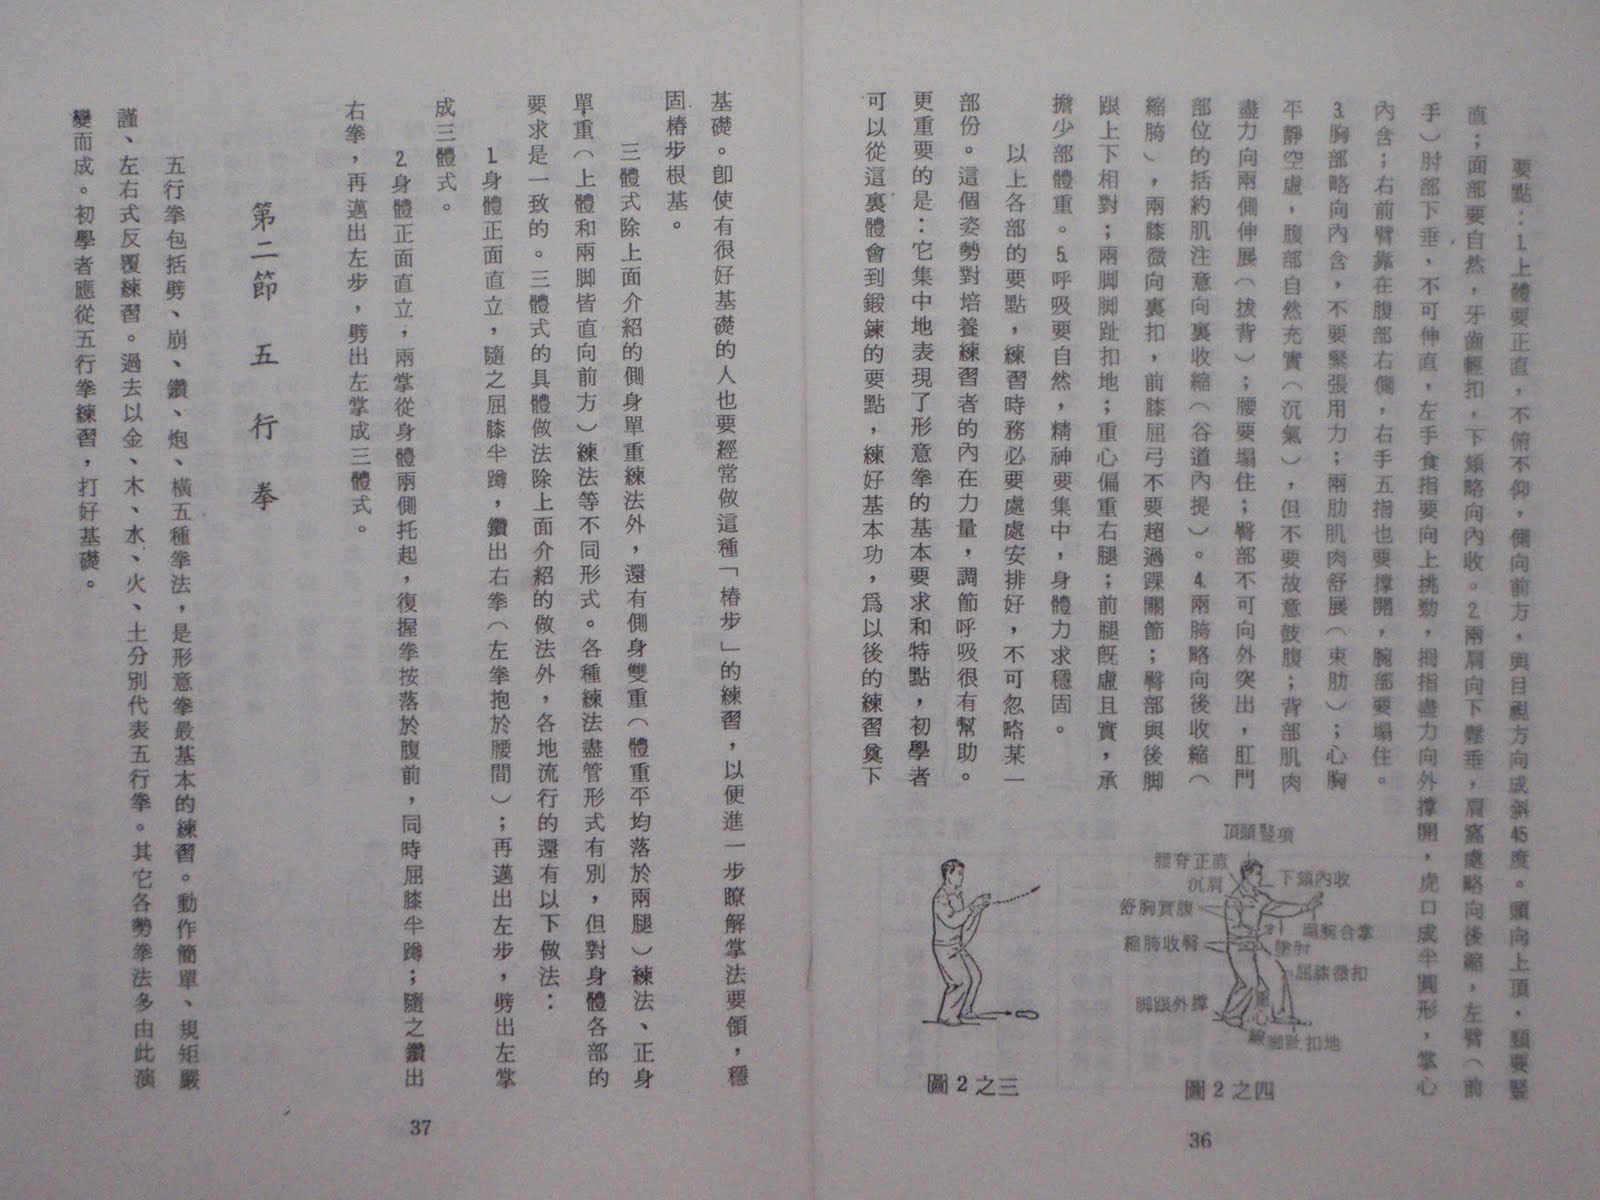 要點：1.上體要正直，不俯不仰，側向前方，與目視方向成斜45度。頭向上頂，頸要豎
直；面部要自然，牙齒輕扣，下頦略向內收。2.兩肩向下鬆垂，肩窩處略向後縮，左臂（前
手）肘部下垂，不可伸直，左手食指要向上挑勁，拇指盡力向外撐開，虎口成半圓形，掌心
內含；右前臂靠在腹部右側，右手五指也要撐開，腕部要塌住。
3.胸部略向內含，不要緊張用力；兩肋肌肉舒展（束肋）；心胸
平靜空虛，腹部自然充實（沉氣），但不要故意鼓腹；背部肌肉
盡力向兩側伸展（拔背）；腰要塌住；臀部不可向外突出，肛門
部位的括約肌注意向裏收縮（谷道內提）。4.兩胯略向後收縮（
縮胯），兩膝微向裏扣，前膝屈弓不要超過踝關節；臀部與後脚
跟上下相對；兩脚脚趾扣地；重心偏重右腿；前腿旣虛且實，承
擔少部體重。5.呼吸要自然，精神要集中，身體力求穩固。
以上各部的要點，練習時務必要處處安排好，不可忽略某一
部份。這個姿勢對培養練習者的內在力量，調節呼吸很有幫助。
更重要的是：它集中地表現了形意拳的基本要求和特點，初學者
可以從這裏體會到鍛鍊的要點，練好基本功，爲以後的練習奠下
頂頭豎項
腰脊正直
沉肩
下頦內收
舒胸實腹
塌腕合掌
縮胯收臀
墜肘
屈膝微扣
脚跟外撐
重心線
脚趾扣地
圖2之三
圖2之四
36
基礎。卽使有很好基礎的人也要經常做這種「樁步」的練習，以便進一步瞭解掌法要領，穩
固樁步根基。
三體式除上面介紹的側身單重練法外，還有側身雙重（體重平均落於兩腿）練法、正身
單重（上體和兩脚皆直向前方）練法等不同形式。各種練法盡管形式有別，但對身體各部的
要求是一致的。三體式的具體做法除上面介紹的做法外，各地流行的還有以下做法：
1.身體正面直立，隨之屈膝半蹲，鑽出右拳（左拳抱於腰間）；再邁出左步，劈出左掌
成三體式。
2.身體正面直立，兩掌從身體兩側托起，復握拳按落於腹前，同時屈膝半蹲；隨之鑽出
右拳，再邁出左步，劈出左掌成三體式。
第二節 五行拳
五行拳包括劈、崩、鑽、炮、橫五種拳法，是形意拳最基本的練習。動作簡單、規矩嚴
謹、左右式反覆練習。過去以金、木、水、火、土分別代表五行拳。其它各勢拳法多由此演
變而成。初學者應從五行拳練習，打好基礎。
37